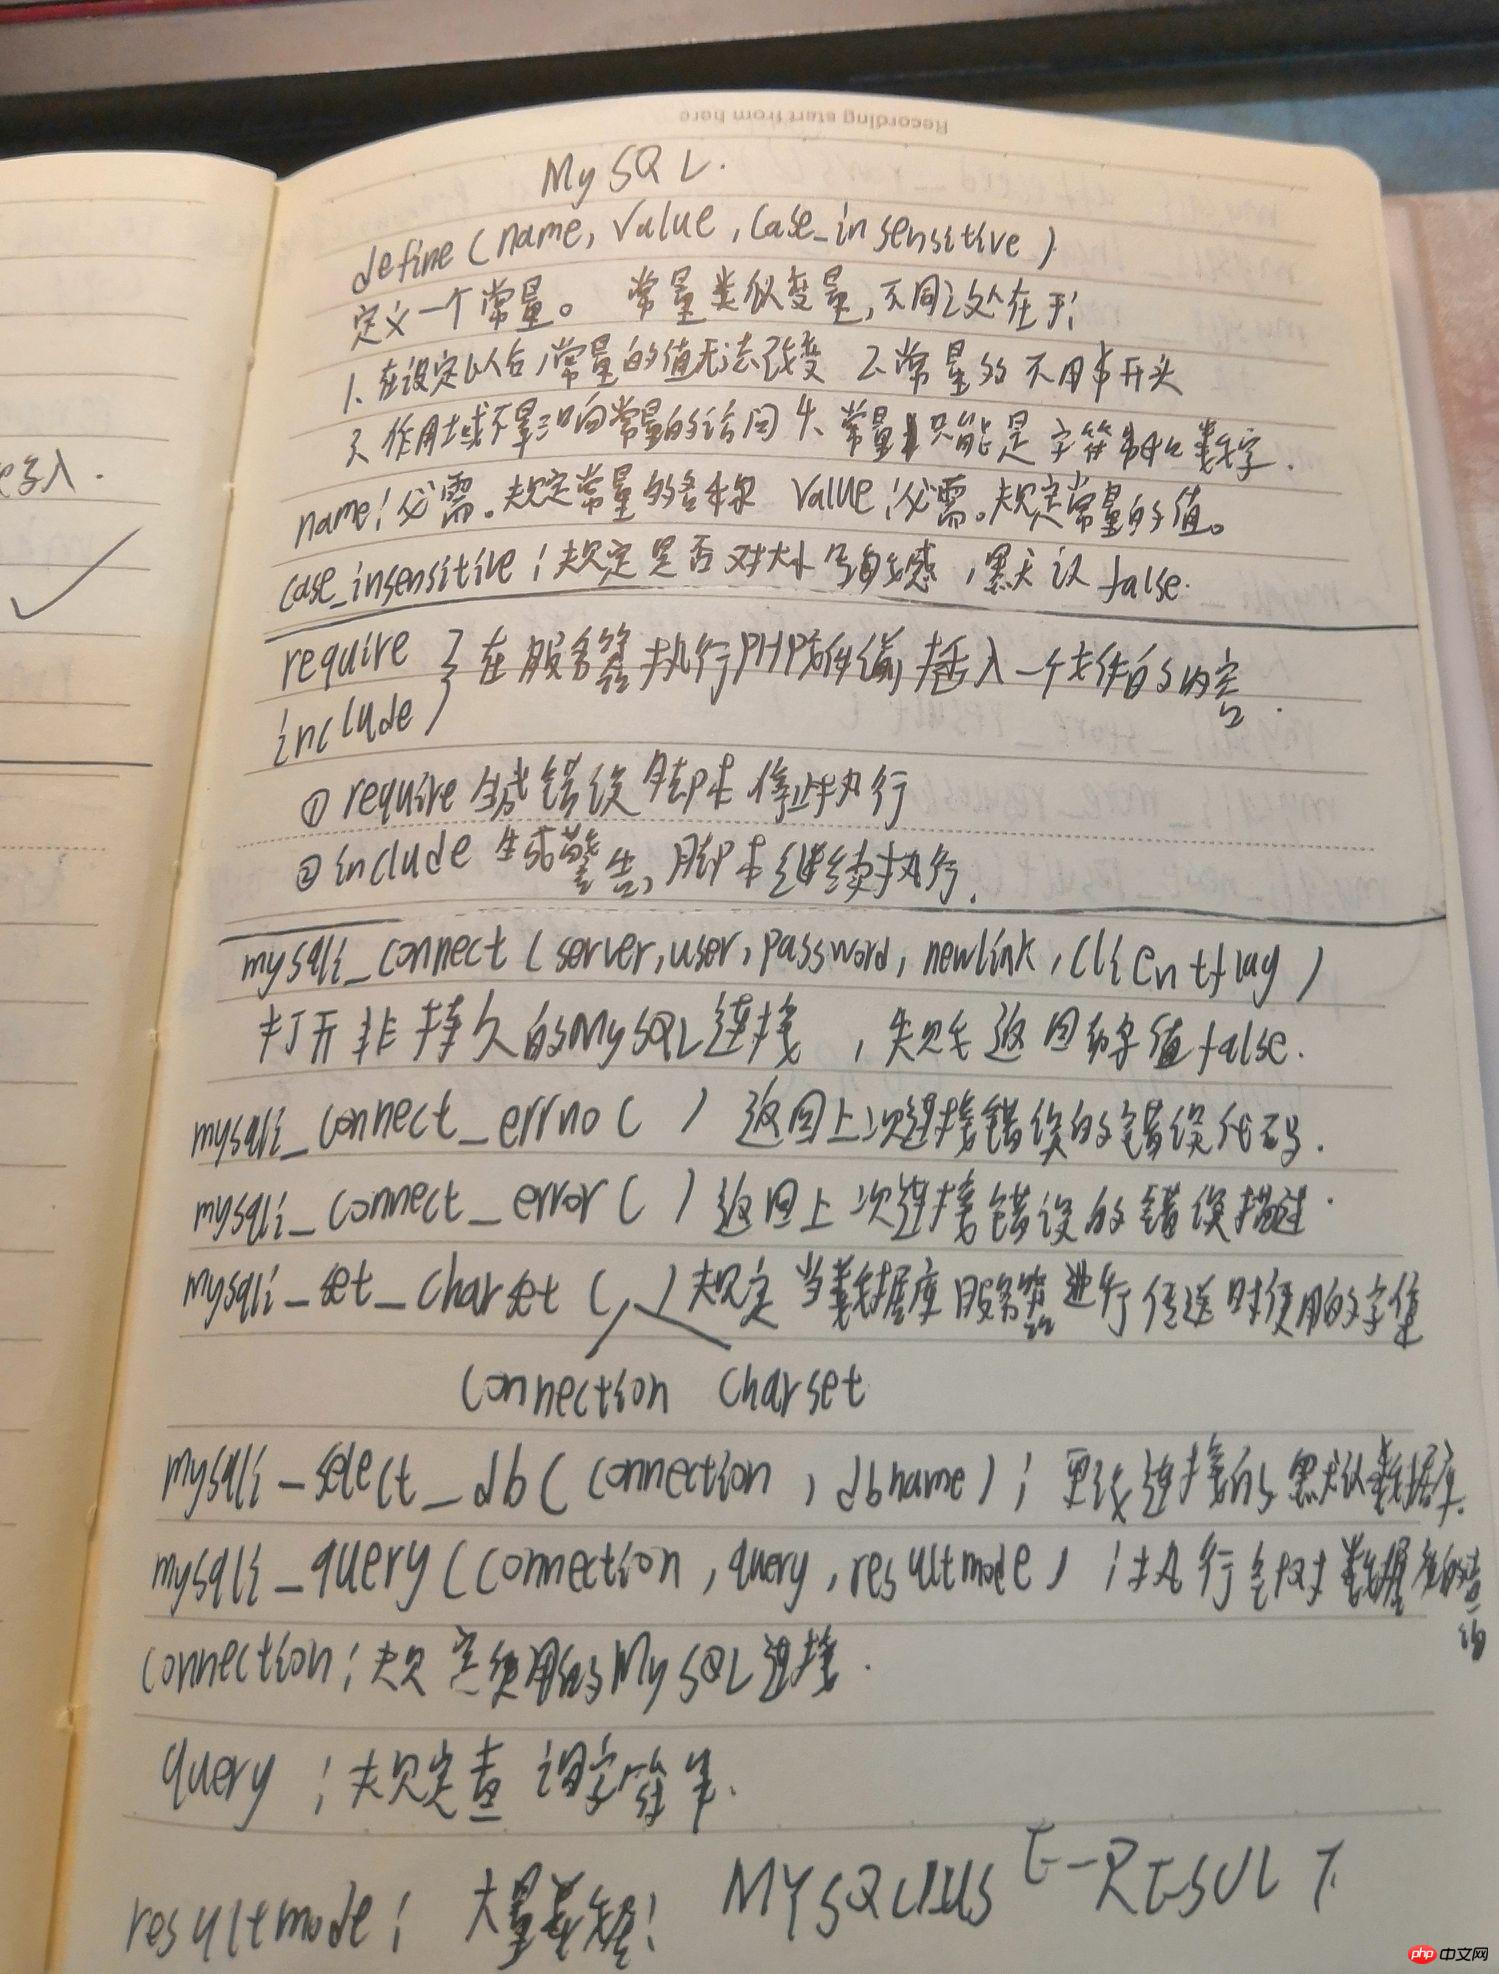 Recording start from here
MySQL.
define(name, value, case_insensitive)
定义一个常量。 常量类似变量,不同之处在于:
1、在设定以后,常量的值无法改变 2、常量的 不用$开头
3、作用域不影响常量的访问 4、常量 只能是字符串和数字.
name:必需。规定常量的名称 value:必需。规定常量的值。
case_insensitive:规定是否对大小写敏感,默认false.
require
include } 在服务器执行PHP文件前插入一个文件的内容.
① require 生成错误 脚本停止执行
② include 生成警告,脚本继续执行.
mysqli_connect(server,user,password,newlink,clientflag)
打开非持久的MySQL连接,失败返回 值false.
mysqli_connect_errno() 返回上次连接错误的错误代码.
mysqli_connect_error() 返回上次连接错误的错误描述.
mysqli_set_charset( , ) 规定当数据库服务器进行传送时使用的字
connection charset
mysqli_select_db(connection,dbname); 更改连接的默认数据库.
mysqli_query(connection,query,resultmode);执行针对数据库的查询
connection:规定使用的MySQL连接.
query:规定查询字符串.
resultmode: 大量数据: MYSQLI_USE_RESULT
写入.
php 中文网